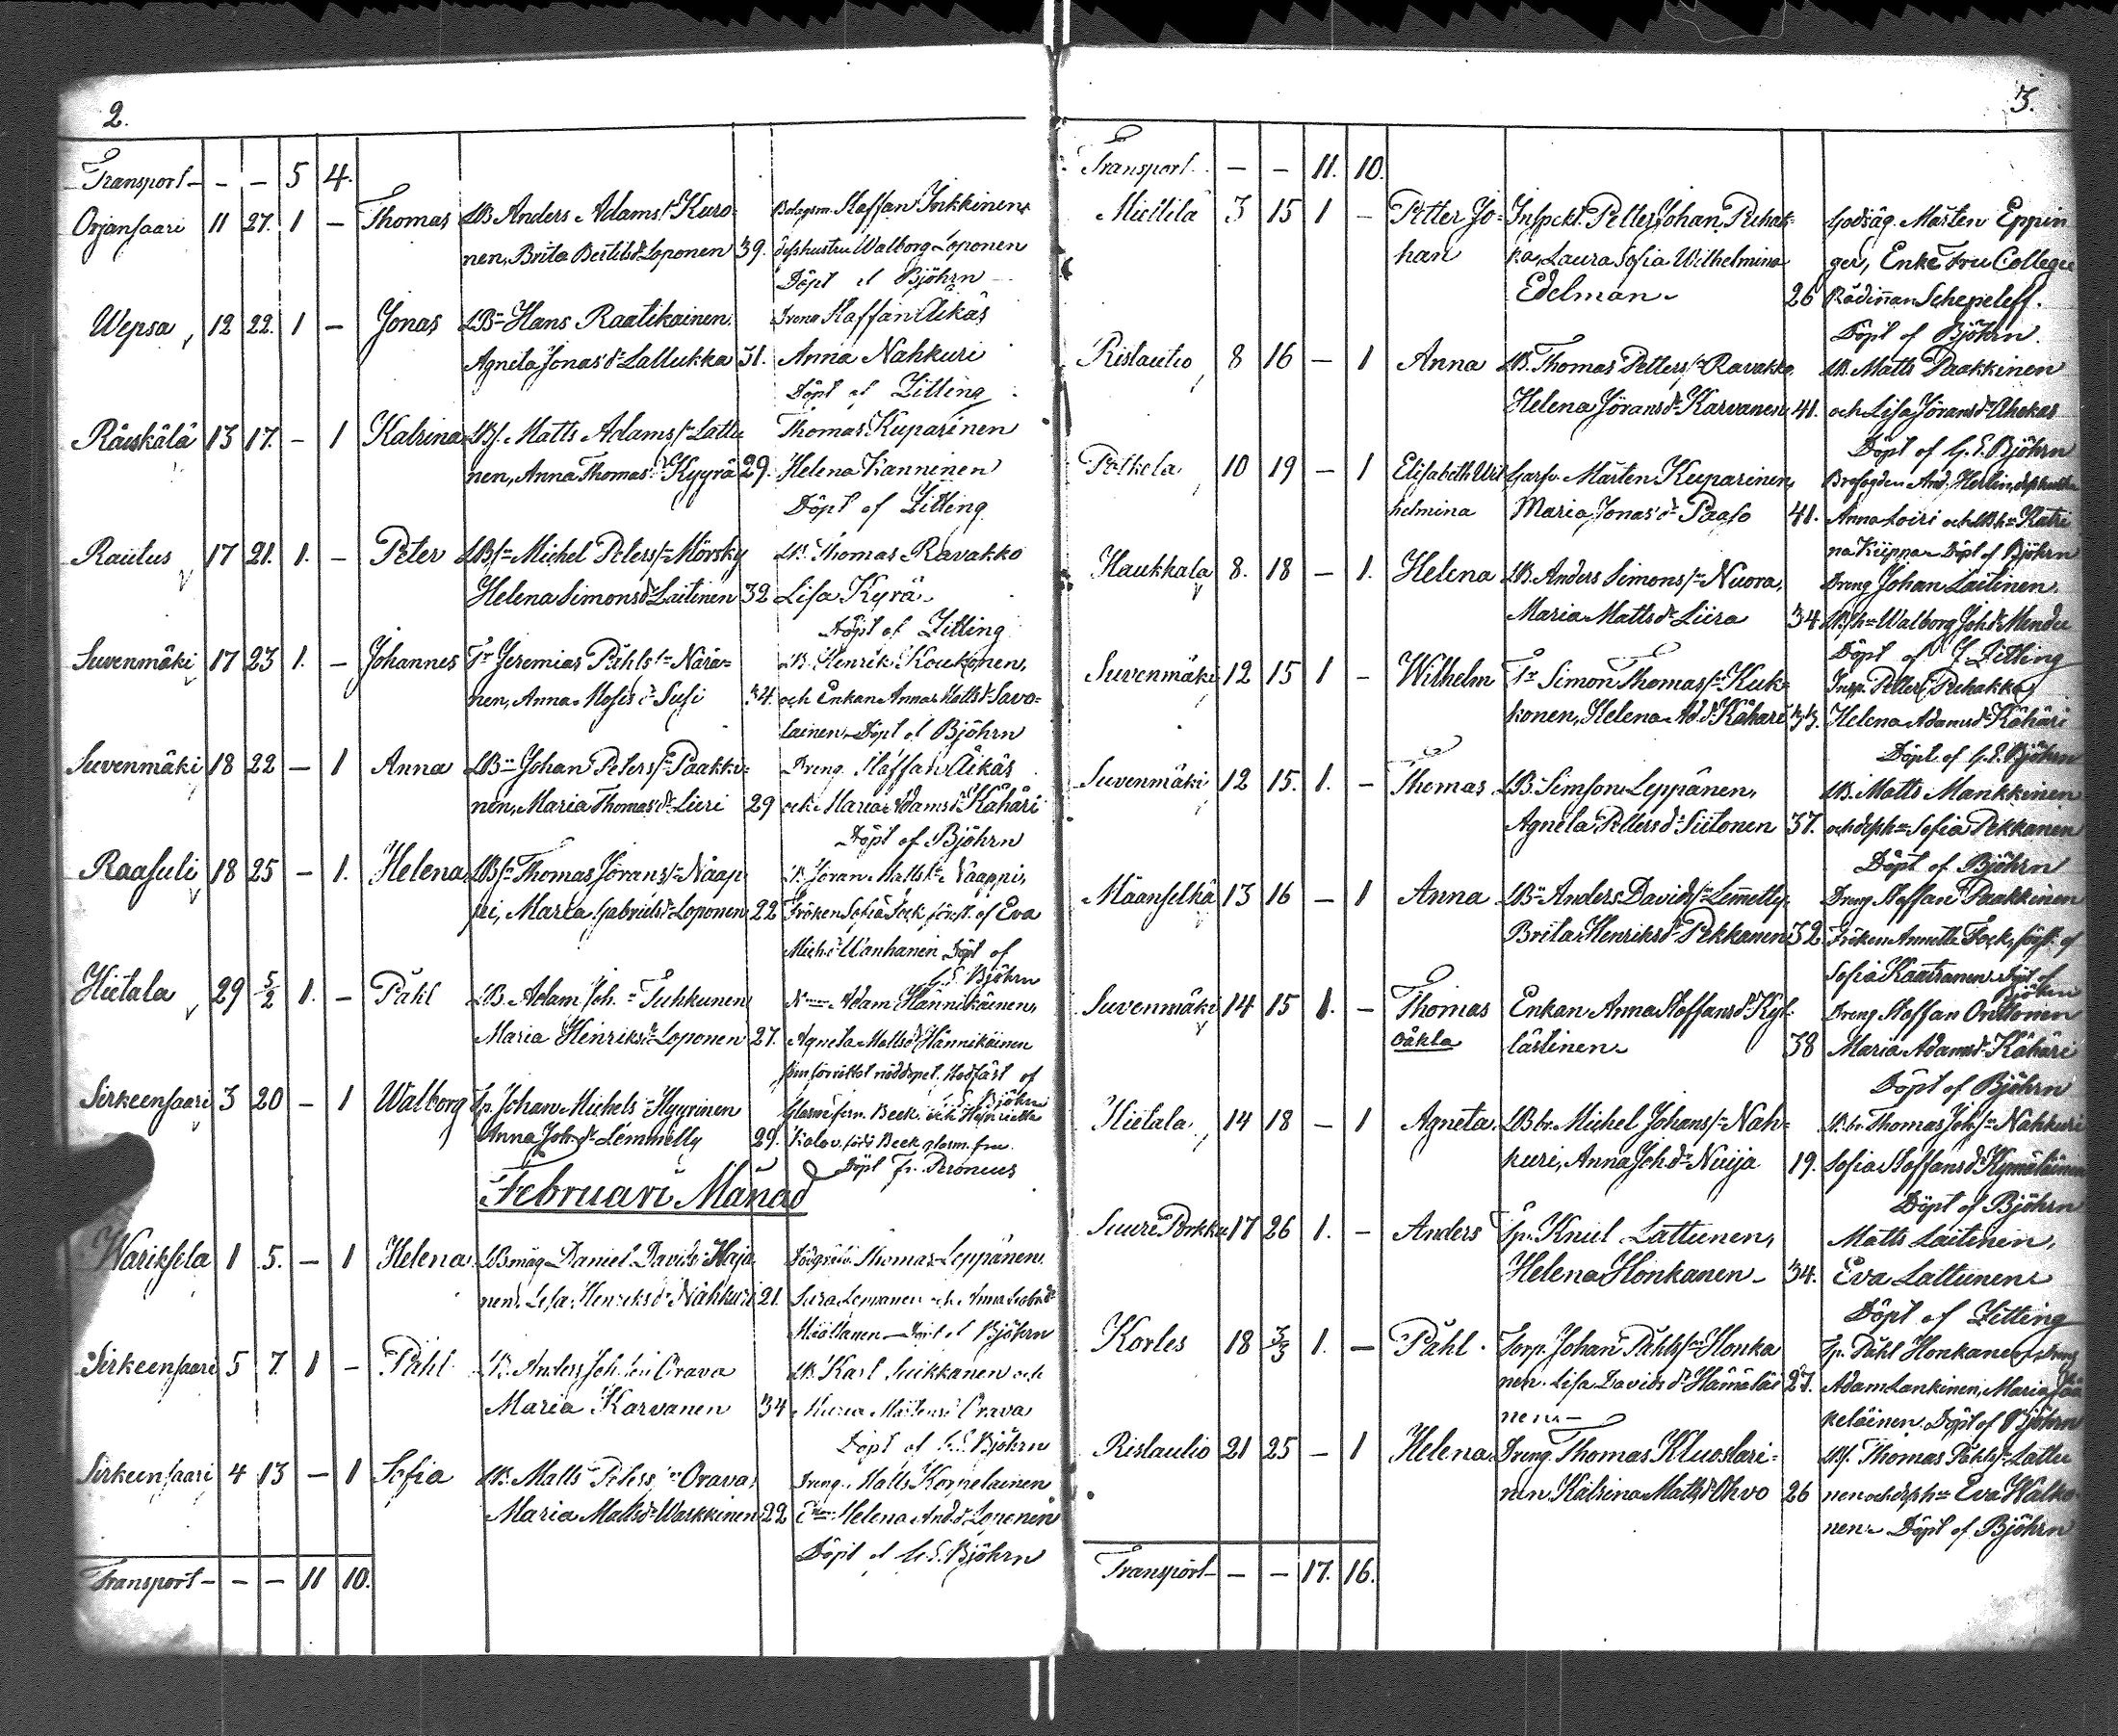 2.
Transport - - - 5 4.
Orjansaari 11 27. 1 - Thomas LB. Anders Adams Kuro-
nen, Brita Bertilsdr Loponen 39.
Bolagsm. Staffan Inkkinen
dess hustru Walborg Loponen
Döpt af Björn
Wepsa 12 22. 1 - Jonas LBn Hans Raatikainen.
Agneta Jonasdr Lallukka 31.
Dreng Staffan Äikäs
Anna Nahkuri
Döpt af Zitting
Räiskälä 13 17. - 1 Katrina LBs. Matts Adams Lattu
nen, Anna Thomasdr Kyyrä 29.
Thomas Kuparinen
Helena Kanninen
Döpt af Zitting
Rautus 17 21. 1. - Peter LBsn Michel Peterssn Mörsky
Helena Simonsdr Laitinen 32
LB. Thomas Ravakko
Lisa Kyrä
Döpt af Zitting
Suvenmäki 17 23 1. - Johannes Tr Jeremias Påhlssn Närä-
nen, Anna Mosisdr Susi 34.
LB. Henrik Koukonen,
och Enkan Anna Mattsdr Savo-
lainen, Döpt af Björn
Suvenmäki 18 22 - 1 Anna LBn Johan Peterssn Paakki-
nen, Maria Thomasdr Lieri 29
Dreng Staffan Äikäs
och Maria Adamsdr Kähäri
Döpt af Björn
Raasuli 18 25 - 1. Helena LBsn Thomas Jöranssn Nääp
pi, Maria Gabrielsdr Loponen 22
Jöran Mattssn Nääppi,
Fröken Sofia Fock, förest. af Eva
Michsdr Wanhanen Döpt af
G.E. Björn
Hietala 29 5/2 1. - Påhl LB. Adam Joh. Tuhkunen
Maria Henriksdr Loponen 27.
Adam Hännikäinen,
Agneta Mattsdr Hännikäinen
som förrättat nöddopet. Stadfäst af
G.E. Björn
Sirkeensaari 3 20 - 1 Walborg Tp. Johan Michels Hyyrinen
Anna Johdr Lemmetty 29.
Beck och Henrietta
Kalov. född Beck glasm. fru
Döpt Fr. Peroneus
Februari Månad
Wariksela 1 5. - 1 Helena LBmåg Daniel Davids Haja
nen, Lisa Henriksdr Nahkuri 21.
Thomas Leppänen
Döpt af Björn
Sirkeensaari 5 7. 1 - Påhl LB. Anders Joh. Orava
Maria Karvanen 34
LB. Karl Suikkanen och
Maria Orava
Döpt af G.E. Björn
Sirkeensaari 4 13 - 1 Sofia LB. Matts Peterssn Orava,
Maria Mattsdr Warkkinen 22
Dreng. Matts Korpelainen
Helena Anddr Loponen
Döpt af G.E. Björn
Transport - - - 11 10.
3.
Transport - - 11. 10.
Miettilä 3 15 1 - Petter Jo-
han
Inspekt. Petter Johan Pehak-
ka, Laura Sofia Wilhelmina
Edelman 26
Godsäg. Mårten Eppin
ger, Enke Fru Collegie
Rådinnan Schepeleff.
Döpt af Björn.
Ristautio 8 16 - 1 Anna LB. Thomas Petterssn Ravakko
Helena Jöransdr Karvanen 41.
LB. Matts Paakkinen
och Lisa Jöransdr Ahokas
Döpt af G.E. Björn
Petkela 10 19 - 1 Elisabeth Wil
helmina
Garfv. Mårten Kuparinen,
Maria Jonasdr Paaso 41.
Brofogden And. Herlin, dess hustru
Anna Loiri och Katri
na Kiippa Döpt af Björn
Haukkala 8. 18 - 1. Helena LB. Anders Simonssn Nuora,
Maria Mattsdr Liira 34
Dreng Johan Laitinen,
Walborg Johdr Mendu
Döpt af Zitting
Suvenmäki 12 15 1 - Wilhelm Tr Simon Thomassn Kuk-
konen, Helena Addr Kähäri 33.
Insp. Petter Pehakka,
Helena Adamsdr Kähäri
Döpt af G.E. Björn
Suvenmäki 12 15. 1. - Thomas LB. Simson Leppänen,
Agneta Pettersdr Siitonen 37.
LB. Matts Mankkinen
och dess h Sofia Pekkanen
Döpt af Björn
Määnselkä 13 16 - 1 Anna LBn Anders Davidssn Lemetty,
Brita Henriksdr Pekkanen 32
Dreng Staffan Paakkinen
Fröken Annette Fock, föest. af
Sofia Kaatranen. Döpt af
Björn
Suvenmäki 14 15 1. - Thomas
oäkta
Enkan Anna Staffansdr Kyl-
lästinen 38
Dreng Staffan Onttonen
Maria Adamsdr Kähäri
Döpt af Björn
Hietala 14 18 - 1 Agneta LBbr. Michel Johanssn Nah-
kuri, Anna Johdr Nuija 19.
LBbr Thomas Johssn Nahkuri
Sofia Staffansdr Kymäläinen
Döpt af Björn
Suuri Porkku 17 26 1. - Anders Tp. Knut Lattunen,
Helena Honkanen 34.
Matts Laitinen,
Eva Lattunen
Döpt af Zitting
Korles 18 3/3 1. - Påhl Torp. Johan Påhlssn Honka
nen. Lisa Davidsdr Hämäläi 27.
nen
Tp. Påhl Honkanen, Dreng
Adam Lankinen, Maria Jää
keläinen. Döpt af Björn
Ristautio 21 25 - 1 Helena Dreng Thomas Kluostari-
nen, Katrina Mattsdr Ohvo 26
LBs. Thomas Påhlssn Lattu
nen och dess h Eva Walko
nen Döpt af Björn
Transport - - - 17. 16.